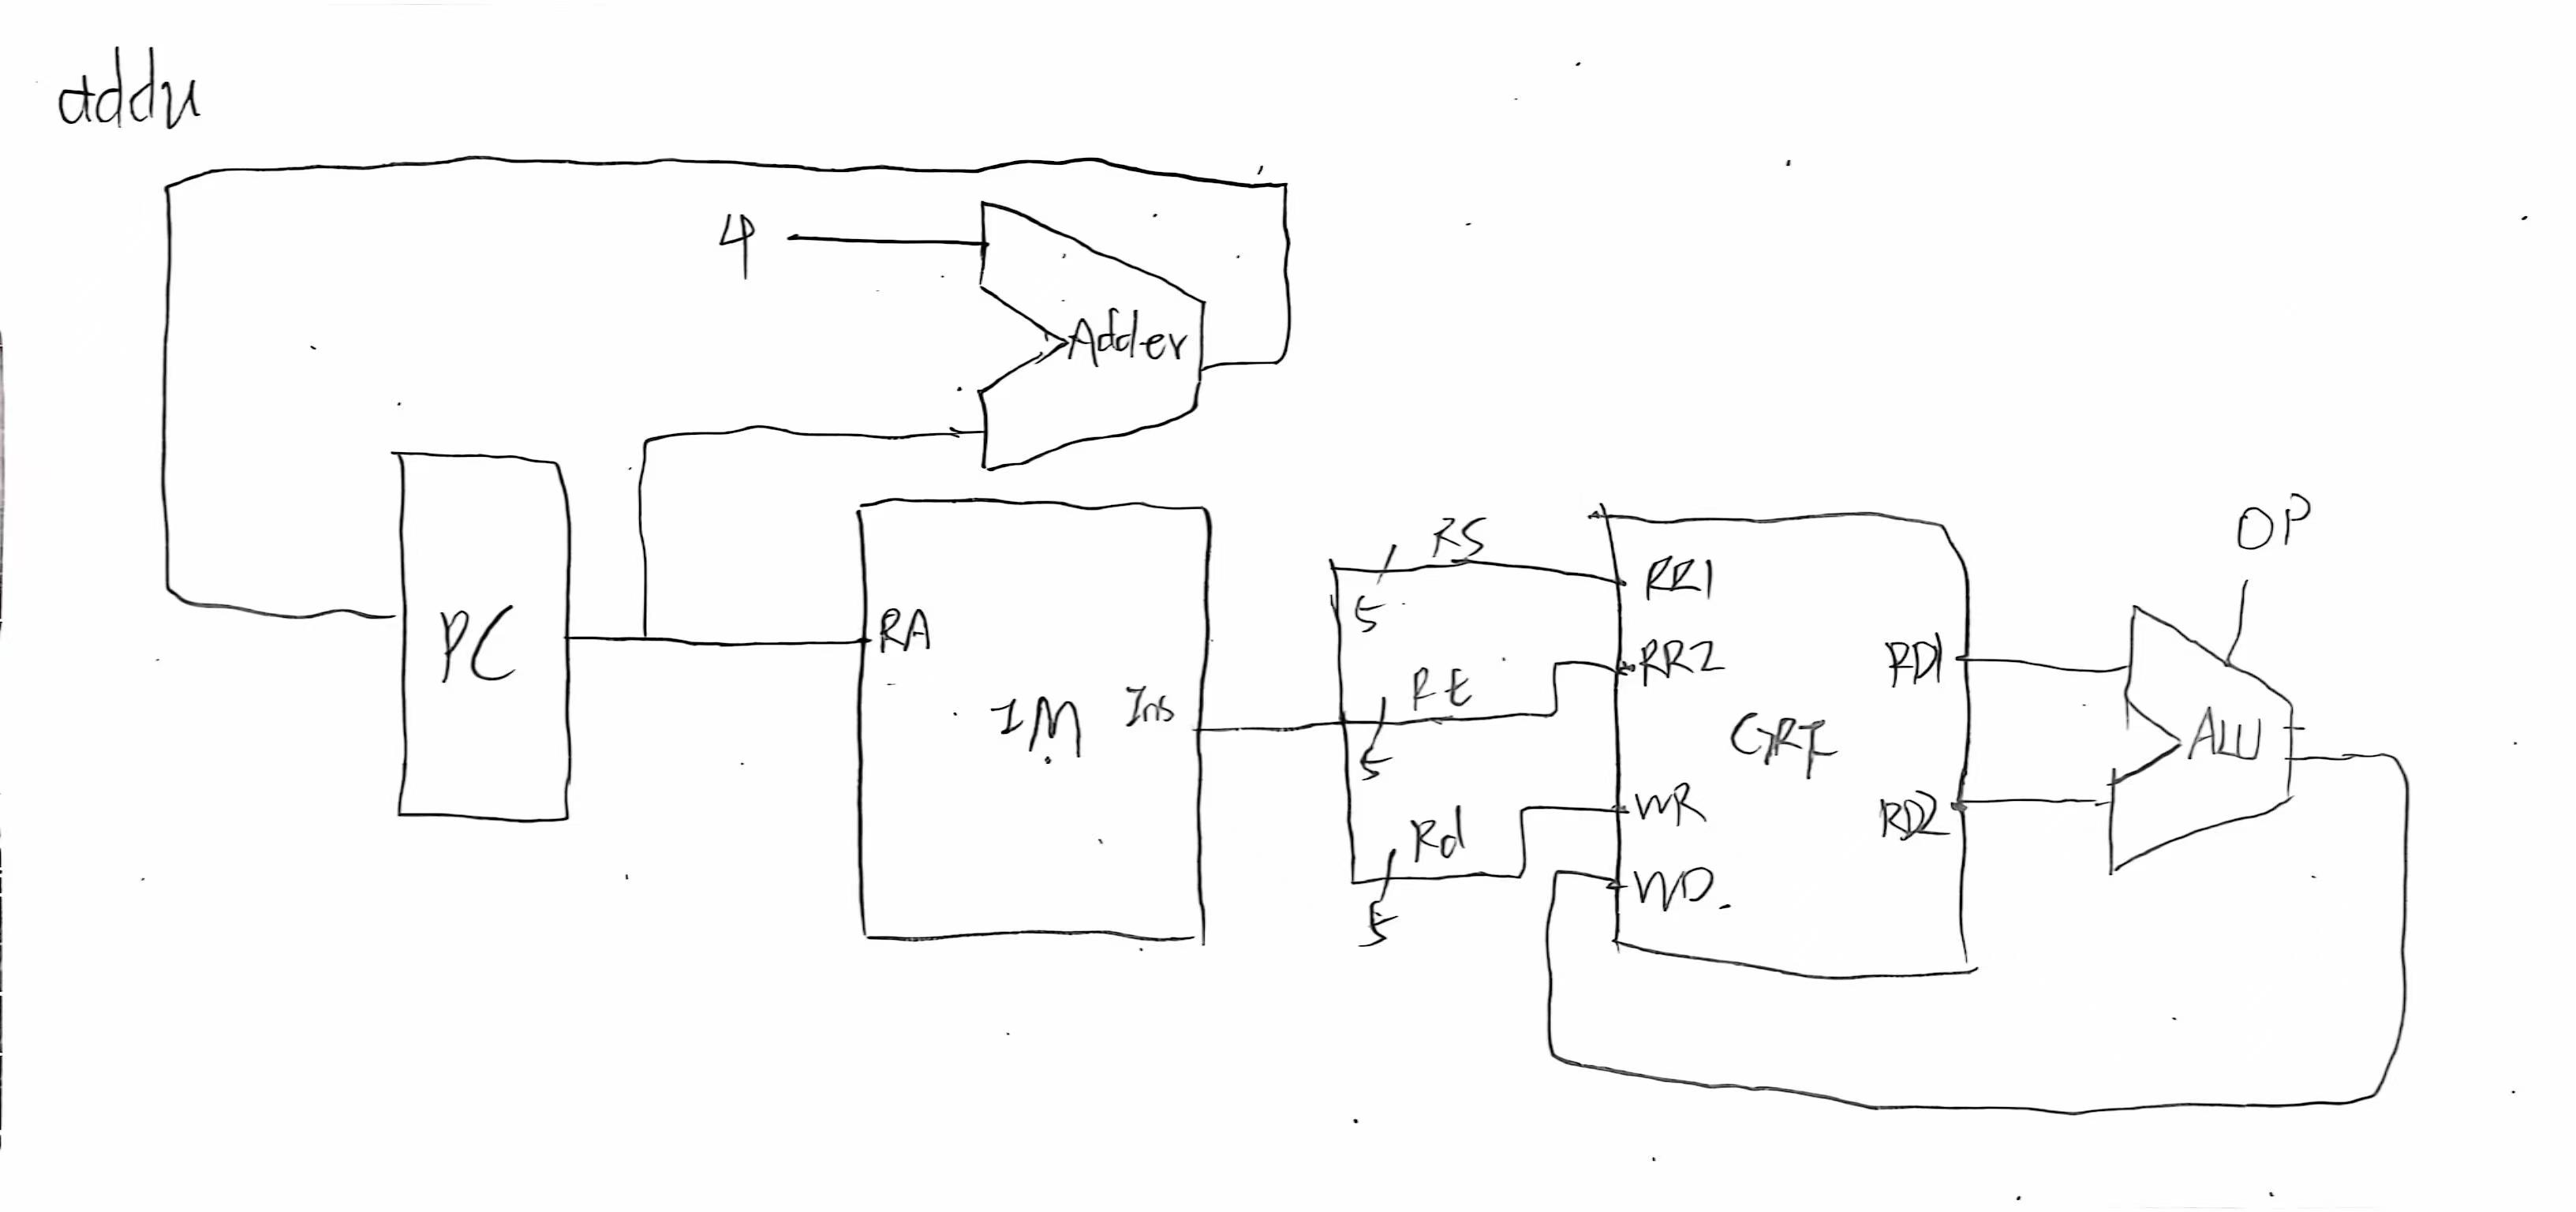 addu
4
Adder
PC
RA
IM
Ins
RS
5
Rt
5
Rd
5
RR1
RR2
WR
WD.
GRF
RD1
RD2
OP
ALU